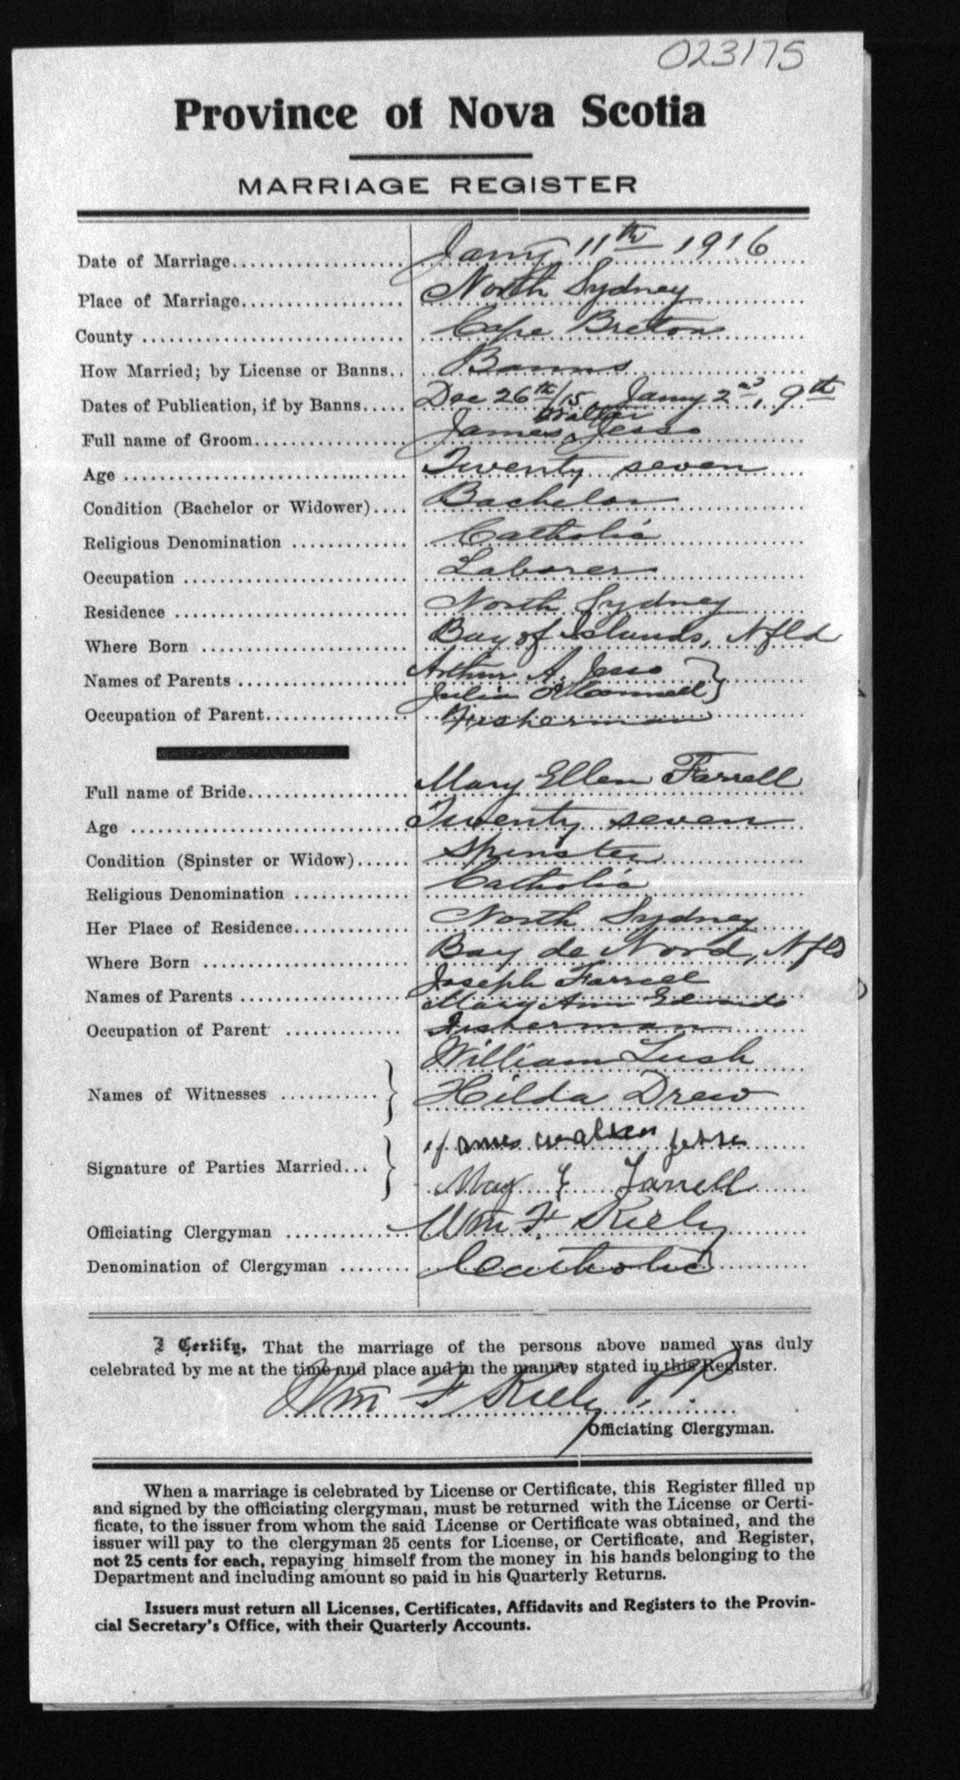 023175
Province of Nova Scotia
MARRIAGE REGISTER
Date of Marriage Jany 11th 1916
Place of Marriage North Sydney
County Cape Breton
How Married; by License or Banns.. Banns
Dates of Publication, if by Banns Dec 26th/15 Jany 2nd, 9th
Walter
Full name of Groom James Jesso
Age Twenty seven
Condition (Bachelor or Widower) Bachelor
Religious Denomination Catholic
Occupation Laborer
Residence North Sydney
Where Born Bay of Islands, Nfld
Names of Parents Arthur A. Jesso
Julia O'Connell
Occupation of Parent Fisherman
Full name of Bride Mary Ellen Farrell
Age Twenty seven
Condition (Spinster or Widow) Spinster
Religious Denomination Catholic
Her Place of Residence North Sydney
Where Born Bay de Nord, Nfld
Names of Parents Joseph Farrell
Mary Ann
Occupation of Parent Fisherman
William Lush
Names of Witnesses Hilda Drew
James walter jesso
Signature of Parties Married
May E Farrell
Officiating Clergyman Wm F. Kiely
Denomination of Clergyman Catholic
I Certify, That the marriage of the persons above named was duly
celebrated by me at the time and place and in the manner stated in this Register.
Wm F Kiely P.P.
Officiating Clergyman.
When a marriage is celebrated by License or Certificate, this Register filled up
and signed by the officiating clergyman, must be returned with the License or Certi-
ficate, to the issuer from whom the said License or Certificate was obtained, and the
issuer will pay to the clergyman 25 cents for License, or Certificate, and Register,
not 25 cents for each, repaying himself from the money in his hands belonging to the
Department and including amount so paid in his Quarterly Returns.
Issuers must return all Licenses, Certificates, Affidavits and Registers to the Provin-
cial Secretary's Office, with their Quarterly Accounts.